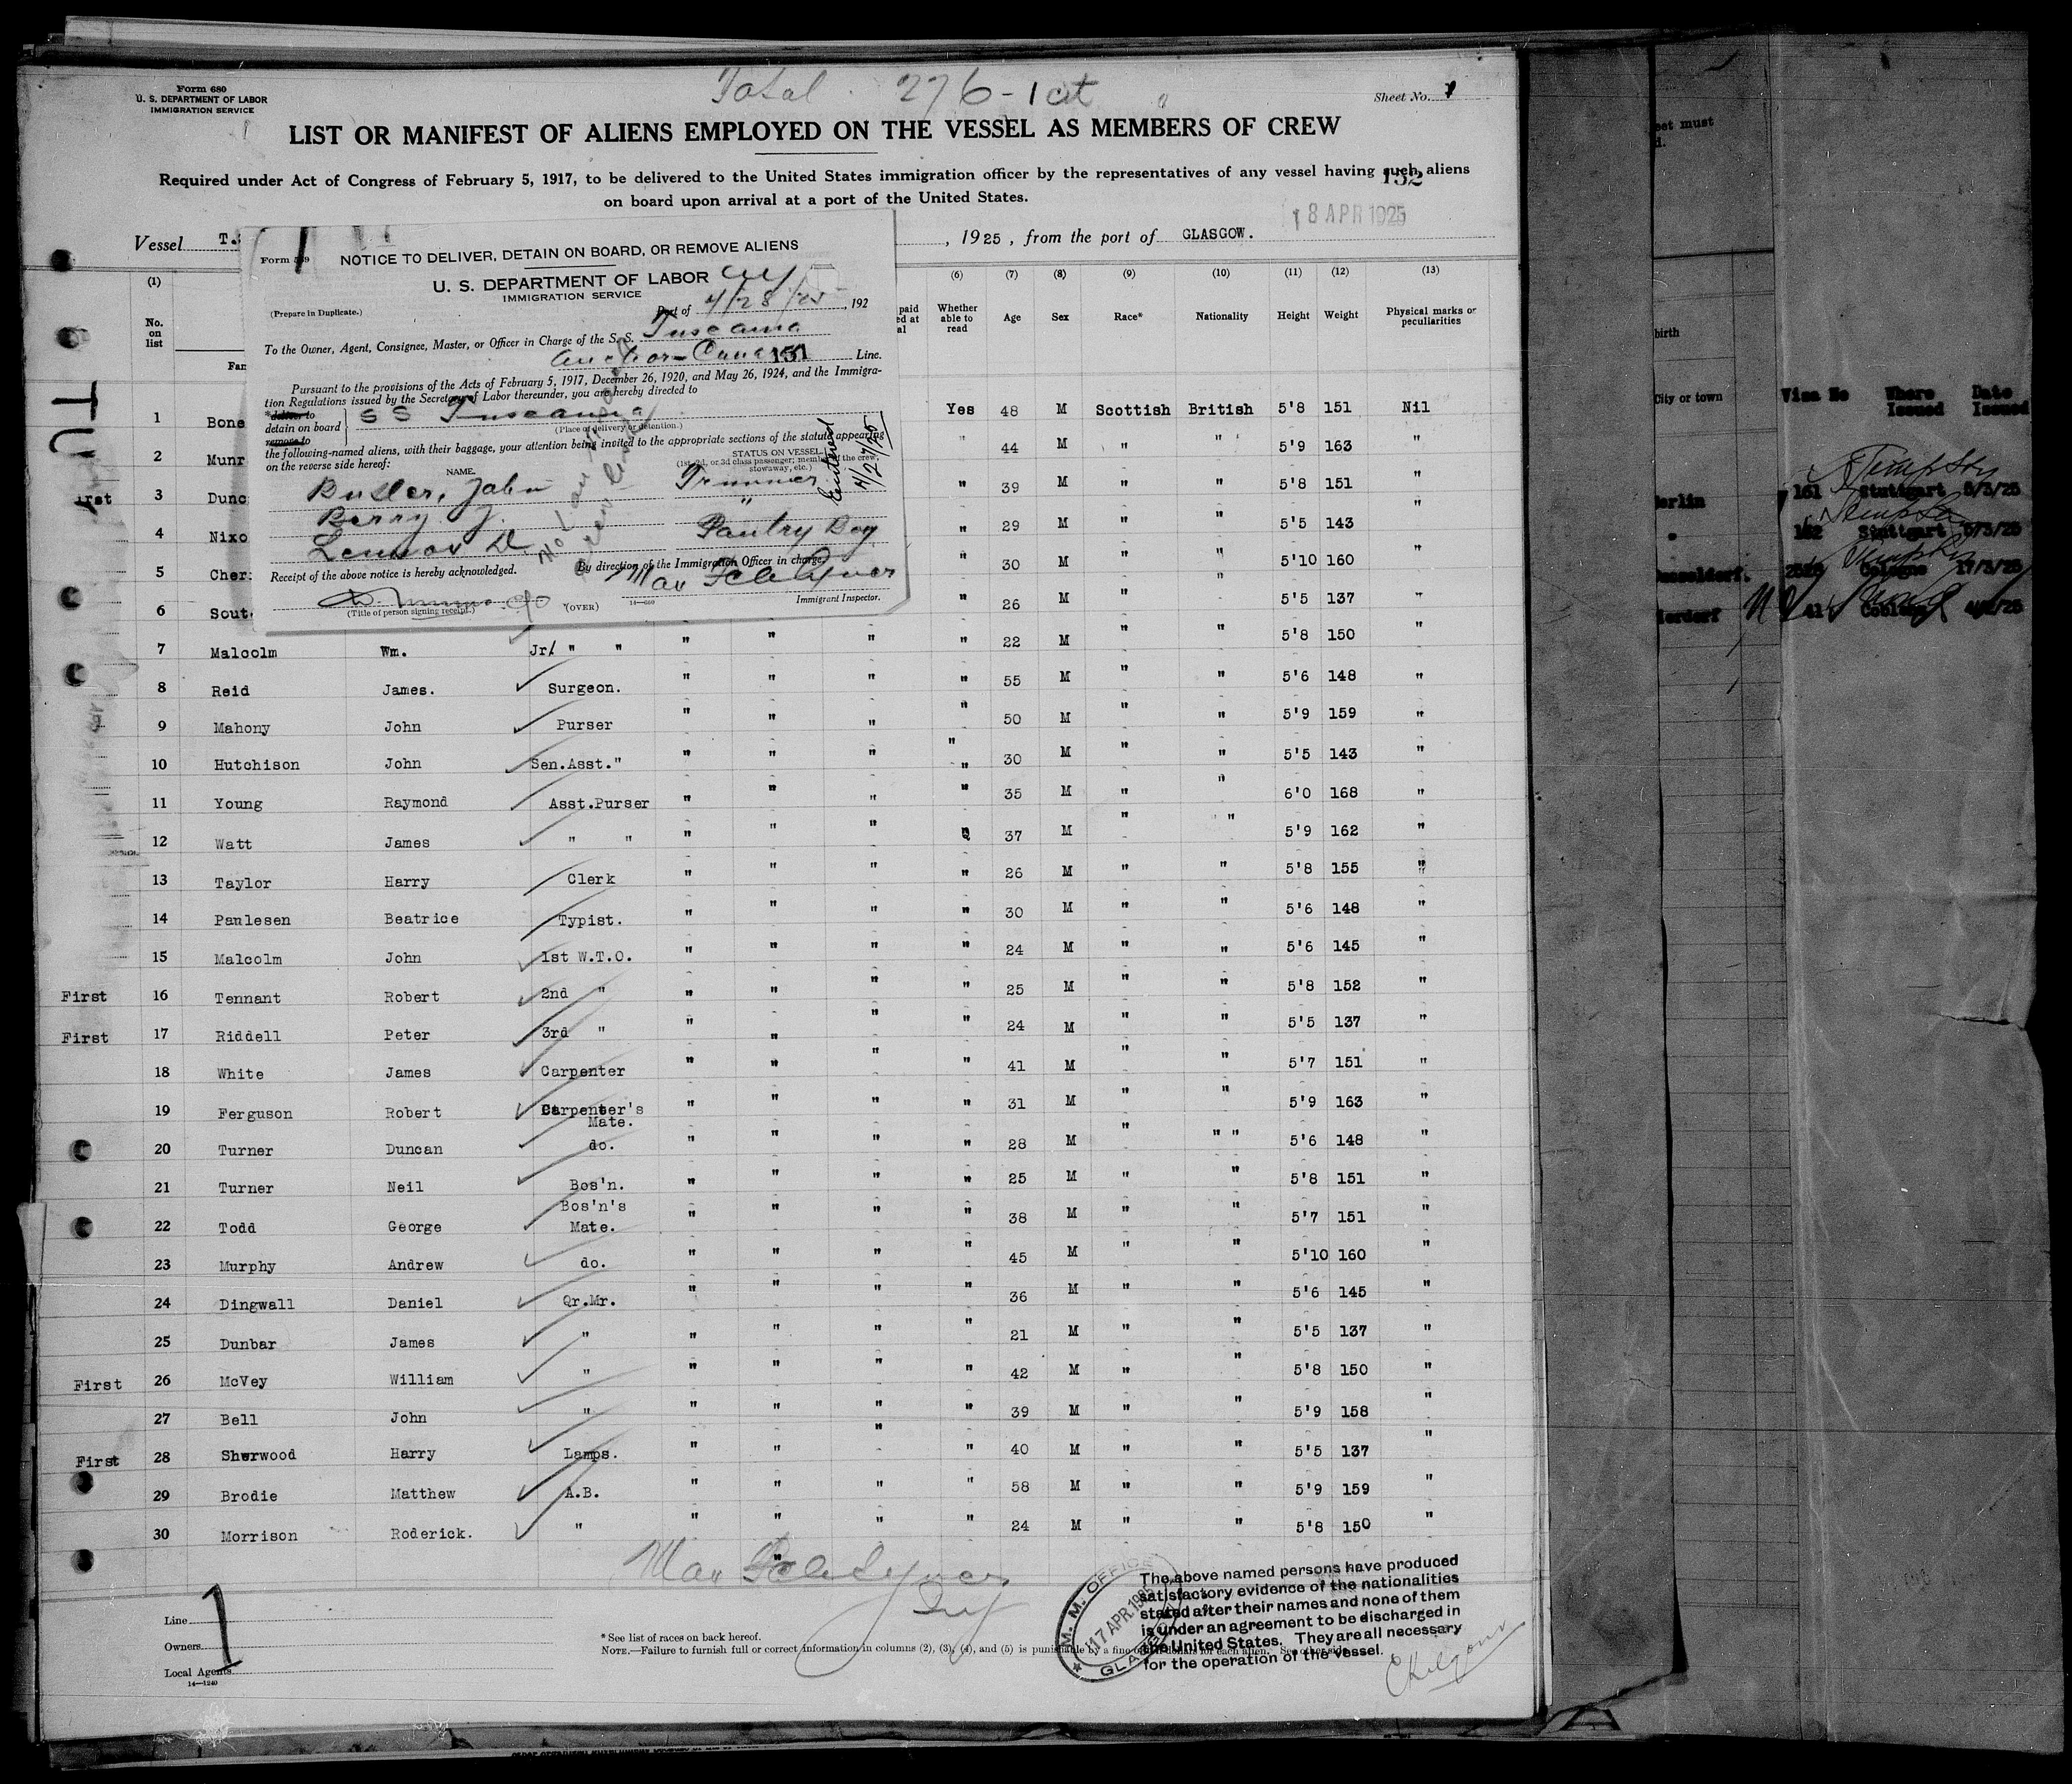 Total 276-1 cat
Form 680
U. S. DEPARTMENT OF LABOR
IMMIGRATION SERVICE
Sheet No. 1
LIST OR MANIFEST OF ALIENS EMPLOYED ON THE VESSEL AS MEMBERS OF CREW
Required under Act of Congress of February 5, 1917, to be delivered to the United States immigration officer by the representatives of any vessel having such aliens
132
on board upon arrival at a port of the United States.
18 APR 1925
Vessel T.
, 1925, from the port of GLASGOW.
Form
NOTICE TO DELIVER, DETAIN ON BOARD, OR REMOVE ALIENS
U. S. DEPARTMENT OF LABOR
IMMIGRATION SERVICE
(Prepare in Duplicate.)
Port of 4/28/25, 192
To the Owner, Agent, Consignee, Master, or Officer in Charge of the S. S. Tuscania
Anchor-Cunard 151 Line.
Pursuant to the provisions of the Acts of February 5, 1917, December 26, 1920, and May 26, 1924, and the Immigra-
tion Regulations issued by the Secretary of Labor thereunder, you are hereby directed to
*deliver to
detain on board
remove to
SS Tuscania
(Place of delivery or detention.)
the following-named aliens, with their baggage, your attention being invited to the appropriate sections of the statute appearing
on the reverse side hereof:
NAME.
STATUS ON VESSEL
(1st, 2d, or 3d class passenger; member of the crew,
stowaway, etc.)
Butler, John Trimmer
Berry J. "
Lennox D. Pantry Boy
Entered
4/27/25
Receipt of the above notice is hereby acknowledged.
By direction of the Immigration Officer in charge.
(Title of person signing receipt.)
(OVER)
Immigrant Inspector.
(1) (6) (7) (8) (9) (10) (11) (12) (13)
No. on list
Whether able to read Age Sex Race* Nationality Height Weight Physical marks or peculiarities
1 Bone Yes 48 M Scottish British 5'8 151 Nil
2 Munr " 44 M " " 5'9 163 "
3 Dunc " 39 M " " 5'8 151 "
4 Nixo " 29 M " " 5'5 143 "
5 Cher " 30 M " " 5'10 160 "
6 Sout " 26 M " " 5'5 137 "
7 Malcolm Wm. Jr. " " " " " " 22 M " " 5'8 150 "
8 Reid James. Surgeon. " " " " 55 M " " 5'6 148 "
9 Mahony John Purser " " " " 50 M " " 5'9 159 "
10 Hutchison John Sen.Asst." " " " " 30 M " " 5'5 143 "
11 Young Raymond Asst.Purser " " " " 35 M " " 6'0 168 "
12 Watt James " " " " " " 37 M " " 5'9 162 "
13 Taylor Harry Clerk " " " " 26 M " " 5'8 155 "
14 Paulesen Beatrice Typist. " " " " 30 M " " 5'6 148 "
15 Malcolm John 1st W.T.O. " " " " 24 M " " 5'6 145 "
First 16 Tennant Robert 2nd " " " " " 25 M " " 5'8 152 "
First 17 Riddell Peter 3rd " " " " " 24 M " " 5'5 137 "
18 White James Carpenter " " " " 41 M " " 5'7 151 "
19 Ferguson Robert Carpenter's Mate. " " " " 31 M " " 5'9 163 "
20 Turner Duncan do. " " " " 28 M " " " 5'6 148 "
21 Turner Neil Bos'n. " " " " 25 M " " 5'8 151 "
22 Todd George Bos'n's Mate. " " " " 38 M " " 5'7 151 "
23 Murphy Andrew do. " " " " 45 M " " 5'10 160 "
24 Dingwall Daniel Qr.Mr. " " " " 36 M " " 5'6 145 "
25 Dunbar James " " " " " 21 M " " 5'5 137 "
First 26 McVey William " " " " " 42 M " " 5'8 150 "
27 Bell John " " " " " 39 M " " 5'9 158 "
First 28 Sherwood Harry Lamps. " " " " 40 M " " 5'5 137 "
29 Brodie Matthew A.B. " " " " 58 M " " 5'9 159 "
30 Morrison Roderick. " " " " " 24 M " " 5'8 150 "
Line
Owners
Local Agents
14—1240
1
* See list of races on back hereof.
NOTE.—Failure to furnish full or correct information in columns (2), (3), (4), and (5) is punishable by a fine of ten dollars for each alien. See other side.
M. M. OFFICE
17 APR. 1925
GLASGOW
The above named persons have produced
satisfactory evidence of the nationalities
stated after their names and none of them
is under an agreement to be discharged in
the United States. They are all necessary
for the operation of the vessel.
TU
birth
City or town
Visa No Where Issued Date Issued
Berlin 161 Stuttgart 5/3/25
" 162 Stuttgart 5/3/25
Dusseldorf. Cologne 17/3/25
41 Coblenz